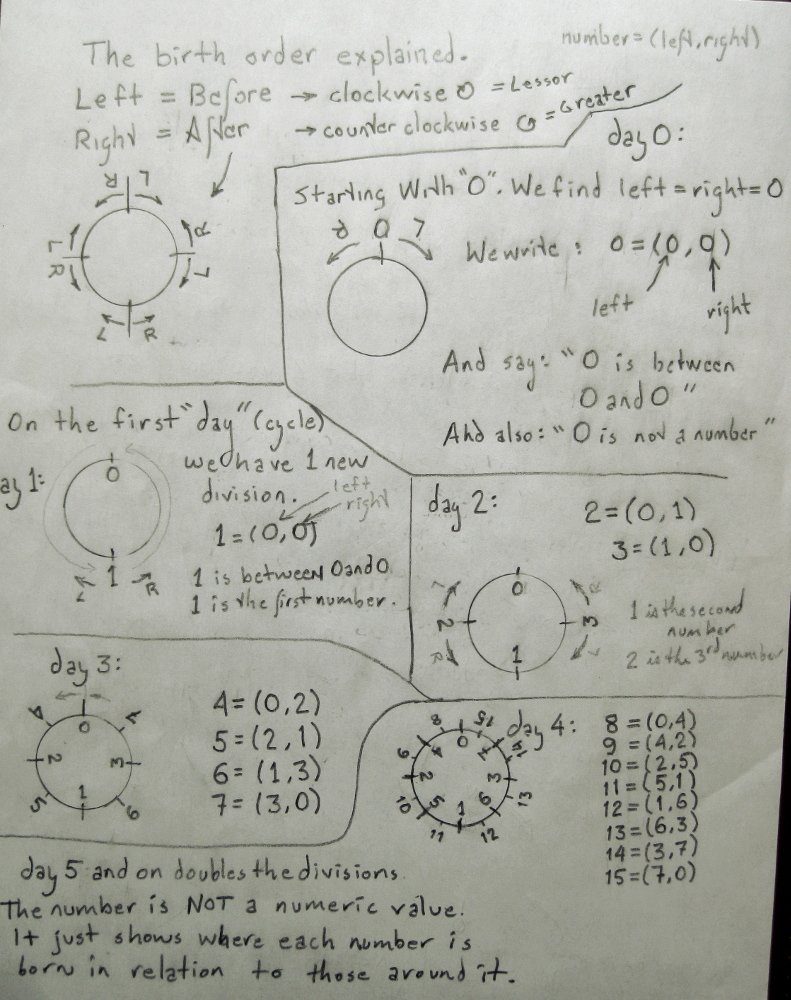 number = (left, right)
The birth order explained.
Left = Before → clockwise ↻ = Lessor
Right = After → counter clockwise ↺ = Greater
R L
L R
R L
L R
day 0:
Starting With "0". We find left = right = 0
R 0 L
We write: 0 = (0, 0)
left right
And say: "0 is between
0 and 0"
And also: "0 is not a number"
On the first "day" (cycle)
ay 1:
0
1
L R
we have 1 new
division.
left
right
1 = (0, 0)
1 is between 0 and 0
1 is the first number.
day 2:
2 = (0, 1)
3 = (1, 0)
0
2 3
1
L R
R L
1 is the second
number
2 is the 3rd number
day 3:
0
4 7
2 3
5 6
1
4 = (0, 2)
5 = (2, 1)
6 = (1, 3)
7 = (3, 0)
day 4:
8 0 15
9 4 7 14
2 3
10 5 6 13
11 1 12
8 = (0, 4)
9 = (4, 2)
10 = (2, 5)
11 = (5, 1)
12 = (1, 6)
13 = (6, 3)
14 = (3, 7)
15 = (7, 0)
day 5 and on doubles the divisions.
The number is NOT a numeric value.
It just shows where each number is
born in relation to those around it.